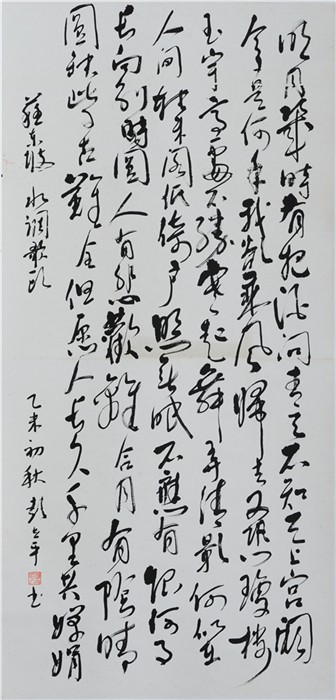 明月幾時有把酒问青天不知天上宫阙
今是何年我欲乘风归去又恐瓊樓
玉宇高處不勝寒起舞弄清影何似在
人间转朱阁低绮户照無眠不應有恨何事
长向别時圆人有悲歡離合月有陰晴
圆缺此事古難全但愿人长久千里共嬋娟
蘇東坡 水调歌頭
乙未初秋 彭 平 书